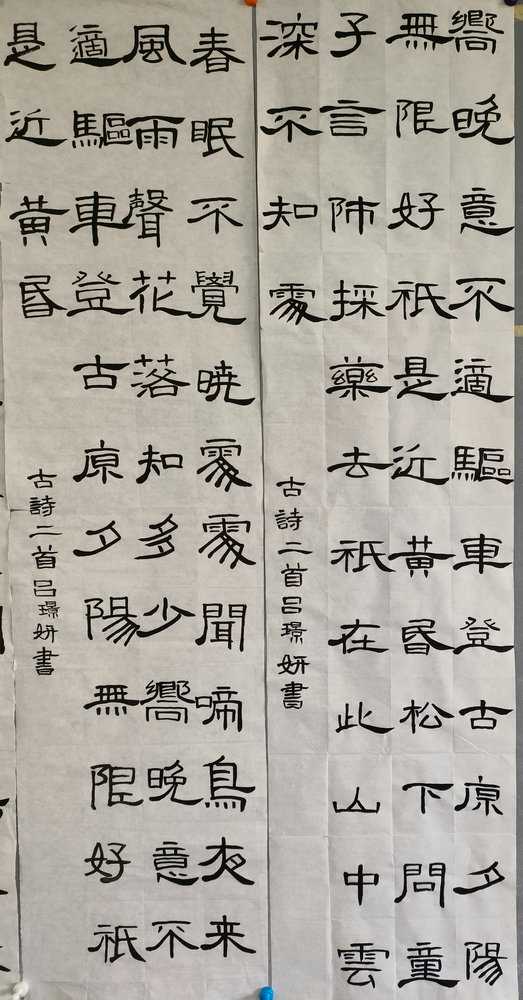 嚮晚意不適驅車登古原夕陽
無限好祇是近黄昏松下問童
子言師採藥去祇在此山中雲
深不知處
古詩二首吕璟妍書
春眠不覺暁處處聞啼鳥夜来
風雨聲花落知多少嚮晚意不
適驅車登古原夕陽無限好祇
是近黄昏
古詩二首吕璟妍書